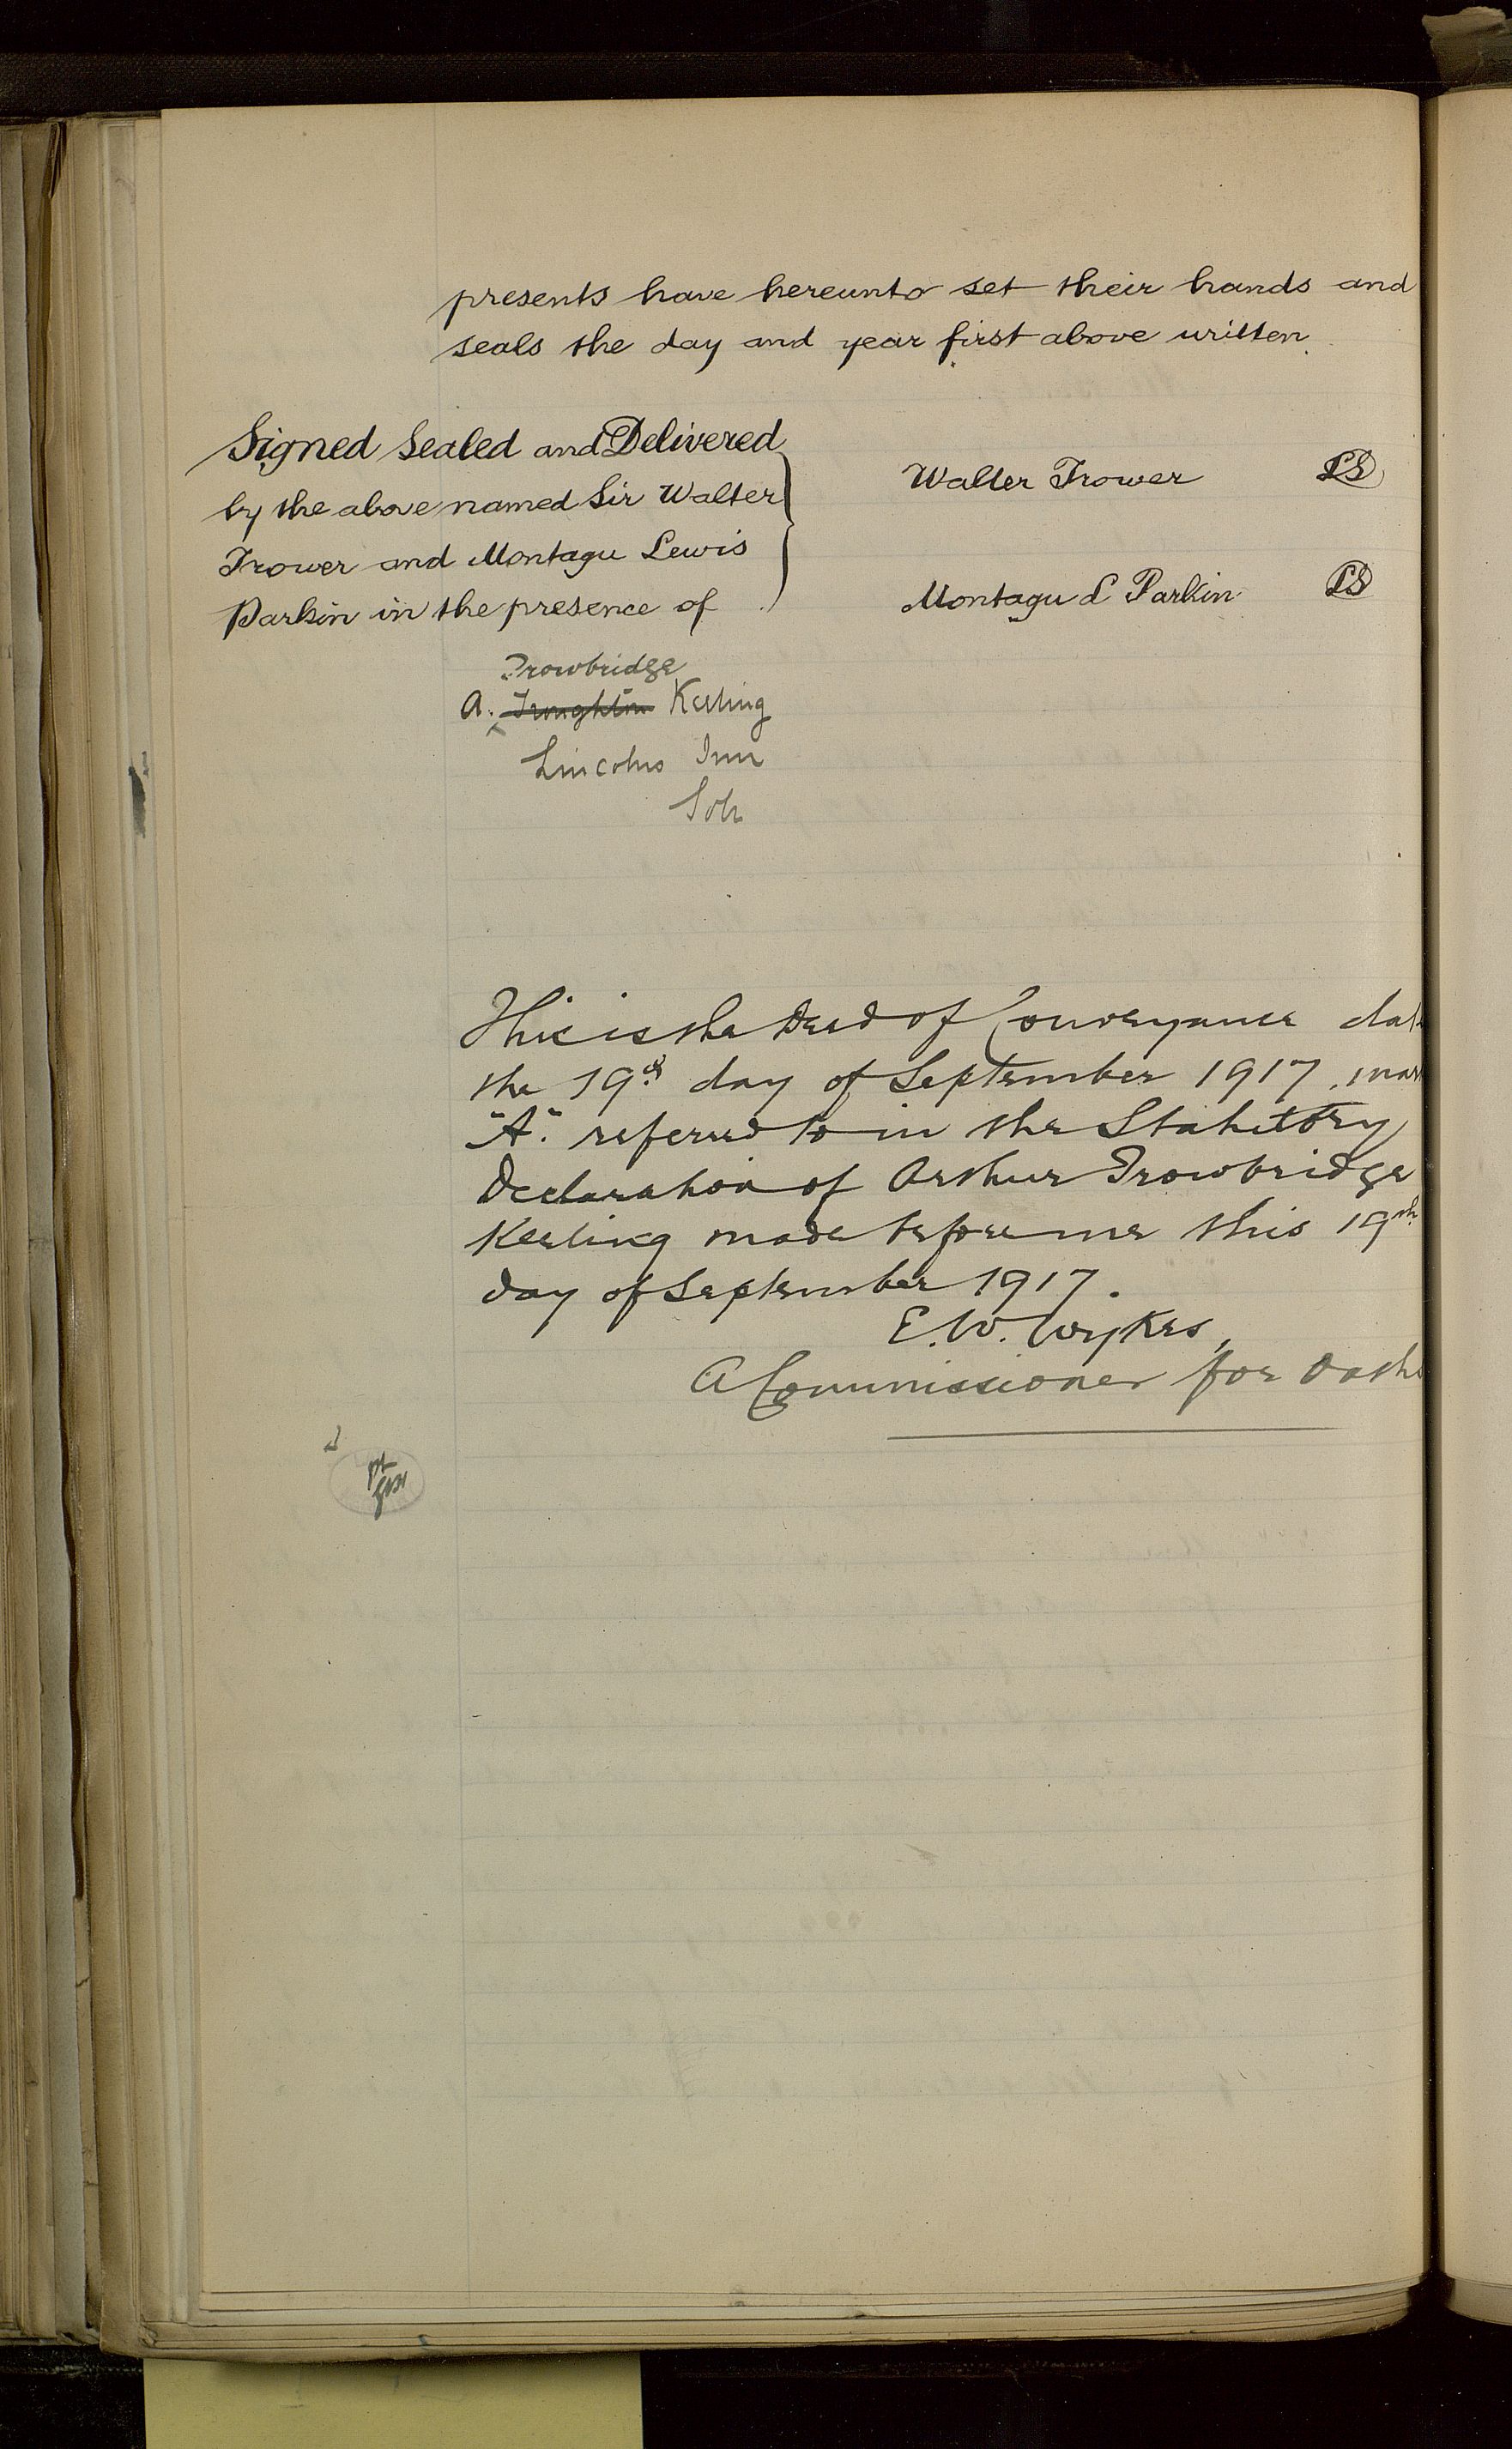 presents have hereunto set their hands and
seals the day and year first above written.
Signed Sealed and Delivered
by the above named Sir Walter
Trower and Montagu Lewis
Parkin in the presence of
Walter Trower LS
Montagu L Parkin LS
Trowbridge
A. Troughton Keeling
Lincolns Inn
Solr
This is the Deed of Conveyance dat
the 19th day of September 1917, mar
"A." referred to in the Statutory
Declaration of Arthur Trowbridge
Keeling made before me this 19th
day of September 1917.
E. W. Wykes,
A Commissioner for Oaths